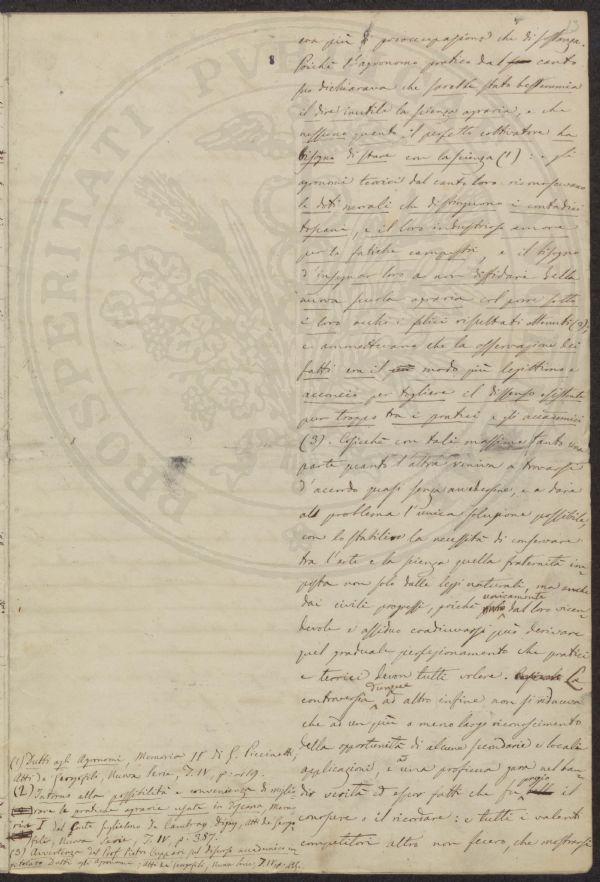 13
era più preoccupazione che di sostanza.
Poichè l'agronomo pratico dal canto
suo dichiarava che sarebbe stato bestemmia
il dire inutile la scienza agraria, e che
nessuno quanto il perfetto coltivatore ha
bisogno di stare con la scienza (1): e gli
agronomi teorici dal canto loro riconoscevano
le doti morali che distinguono i contadini
toscani, e il loro industrioso amore
per le fatiche campestri, e il bisogno
d'insegnar loro a non diffidare della
nuova scuola agraria col porre sotto
i loro occhi i felici risultati ottenuti (2),
e ammettevano che la osservazione dei
fatti era il modo più legittimo e
acconcio per togliere il dissenso esistente
pur troppo tra i pratici e gli accademici
(3). Cosicchè con tali massime tanto una
parte quanto l'altra veniva a trovarsi
d'accordo quasi senza avvedersene, e a dare
al problema l'unica soluzione possibile,
con lo stabilire la necessità di conservare
tra l'arte e la scienza quella fraternità im-
posta non solo dalle leggi naturali, ma anche
dai civili progressi, poichè unicamente dal loro vicen-
devole e assiduo coadiuvarsi può derivare
quel graduale perfezionamento che pratici
e teorici devon tutti volere. La
controversia dunque ad altro infine non si riduceva
che ad un più o meno largo riconoscimento
della opportunità di alcune secondarie e locali
applicazioni, e a una proficua gara nel ban-
dir verità ed esper fatti che fu pregio il
conoscere o il ricordare: e tutti i valenti
competitori altro non fecero, che mostrarsi
(1) Dutti agli Agronomi, Memoria IIª di G. Piccinetti,
Atti de' Georgofili, Nuova Serie, T. IV, p. 419.
(2) Intorno alla possibilità e convenienza di miglio-
rare le pratiche agrarie usate in Toscana, Memo-
ria I del Conte Guglielmo de Cambray Digny, Atti de' Georgo-
fili, Nuova Serie, T. IV, p. 387.
(3) Avvertenza del Prof. Pietro Cuppari sul discorso accademico in-
titolato Dutti agli Agronomi, Atti de' Georgofili, Nuova Serie, T. IV, p. 485.
PROSPERITATI PVBLICAE